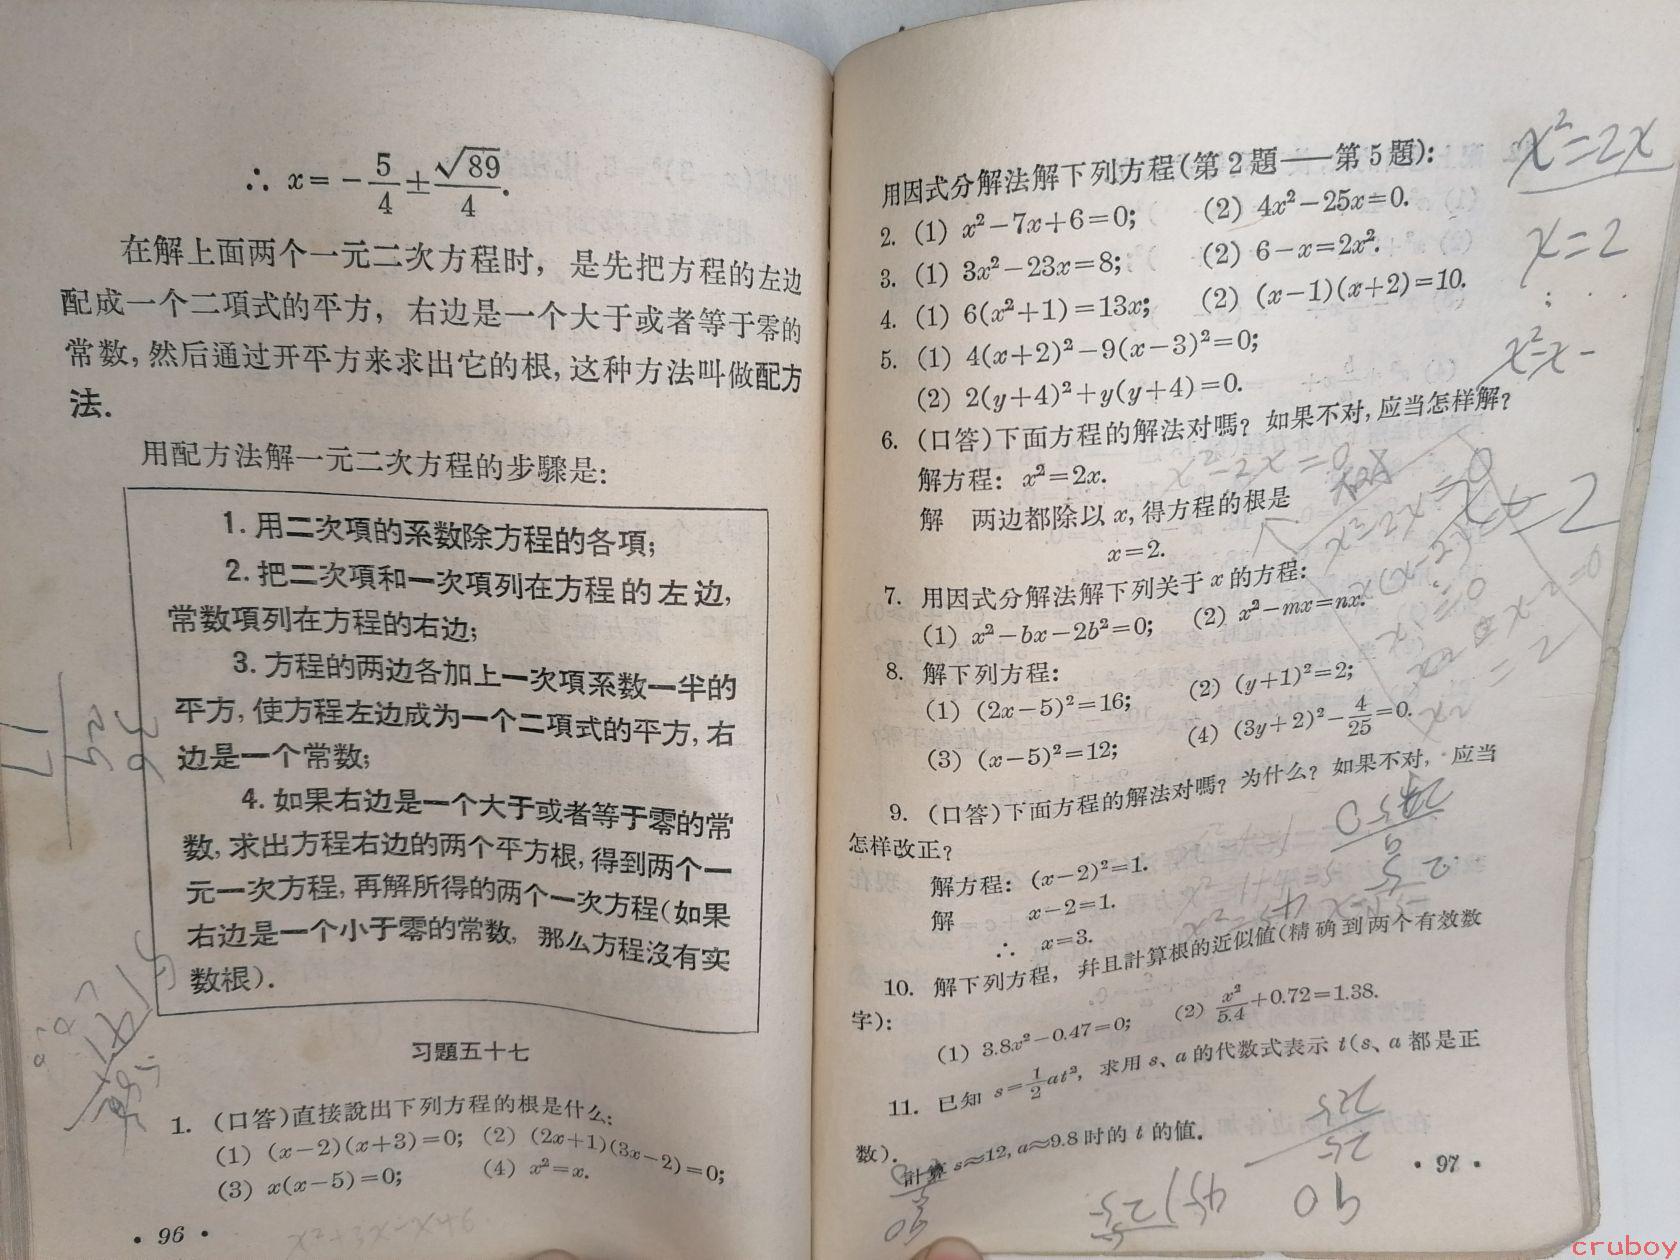 ∴ x=-5/4±√89/4.
在解上面两个一元二次方程时，是先把方程的左边
配成一个二項式的平方，右边是一个大于或者等于零的
常数，然后通过开平方来求出它的根，这种方法叫做配方
法.
用配方法解一元二次方程的步驟是：
1. 用二次項的系数除方程的各項；
2. 把二次項和一次項列在方程的左边，
常数項列在方程的右边；
3. 方程的两边各加上一次項系数一半的
平方，使方程左边成为一个二項式的平方，右
边是一个常数；
4. 如果右边是一个大于或者等于零的常
数，求出方程右边的两个平方根，得到两个一
元一次方程，再解所得的两个一次方程（如果
右边是一个小于零的常数，那么方程沒有实
数根）.
习題五十七
1. （口答）直接說出下列方程的根是什么：
(1) (x-2)(x+3)=0; (2) (2x+1)(3x-2)=0;
(3) x(x-5)=0; (4) x²=x.
x²+3x-x+6
• 96 •
用因式分解法解下列方程（第2題——第5題）：
2. (1) x²-7x+6=0; (2) 4x²-25x=0.
3. (1) 3x²-23x=8; (2) 6-x=2x².
4. (1) 6(x²+1)=13x; (2) (x-1)(x+2)=10.
5. (1) 4(x+2)²-9(x-3)²=0;
(2) 2(y+4)²+y(y+4)=0.
6. （口答）下面方程的解法对嗎？如果不对，应当怎样解？
解方程：x²=2x.
x²-2x=0
解 两边都除以 x，得方程的根是
x=2.
7. 用因式分解法解下列关于 x 的方程：
(1) x²-bx-2b²=0; (2) x²-mx=nx.
8. 解下列方程：
(1) (2x-5)²=16; (2) (y+1)²=2;
(3) (x-5)²=12; (4) (3y+2)²-4/25=0.
9. （口答）下面方程的解法对嗎？为什么？如果不对，应当
怎样改正？
解方程：(x-2)²=1.
解 x-2=1.
∴ x=3.
10. 解下列方程，幷且計算根的近似值（精确到两个有效数
字）：
(1) 3.8x²-0.47=0; (2) x²/5.4+0.72=1.38.
11. 已知 s=1/2at²，求用 s、a 的代数式表示 t（s、a 都是正
数）.
計算 s≈12, a≈9.8 时的 t 的值.
• 97 •
x²=2x
x=2
x²-x-
x²-2x=0
x(x-2)=0
cruboy